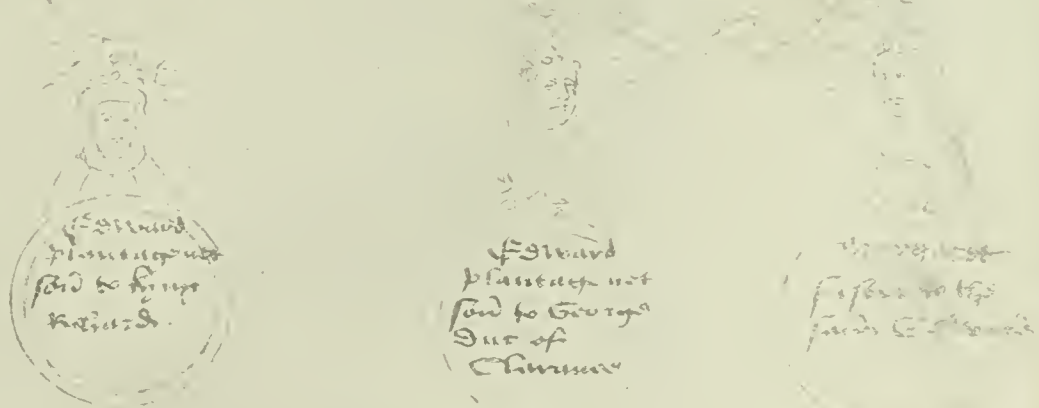 Edward
plantagenet
son to kyng
Richard.
Edward
plantagenet
son to George
Duc of
Clarance
sister to the